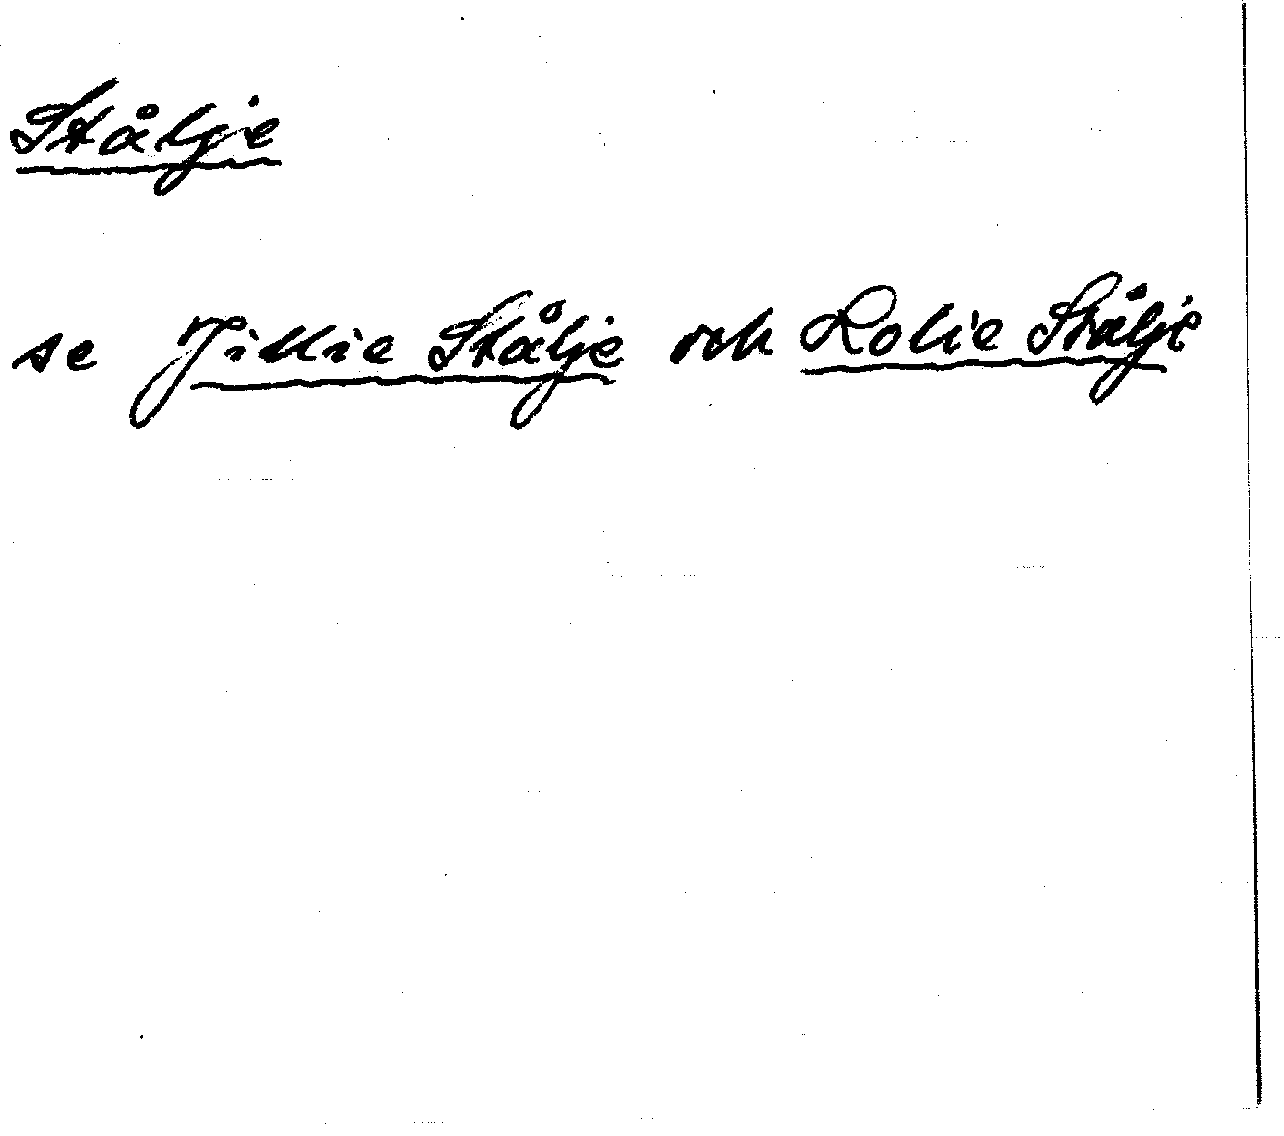 Stålje
se Jillie Stålje och Rolie Stålje